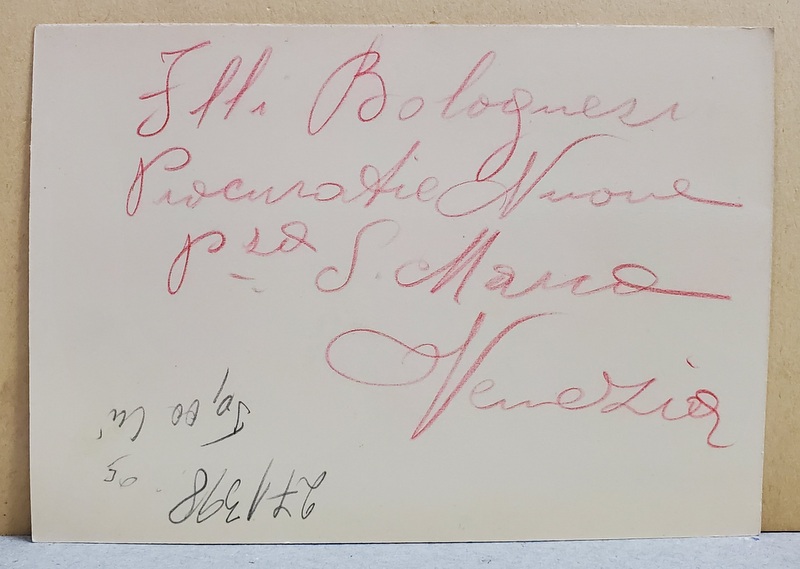 Flli Bolognesi
Procuratie Nuove
pza S. Marco
Venezia
271398